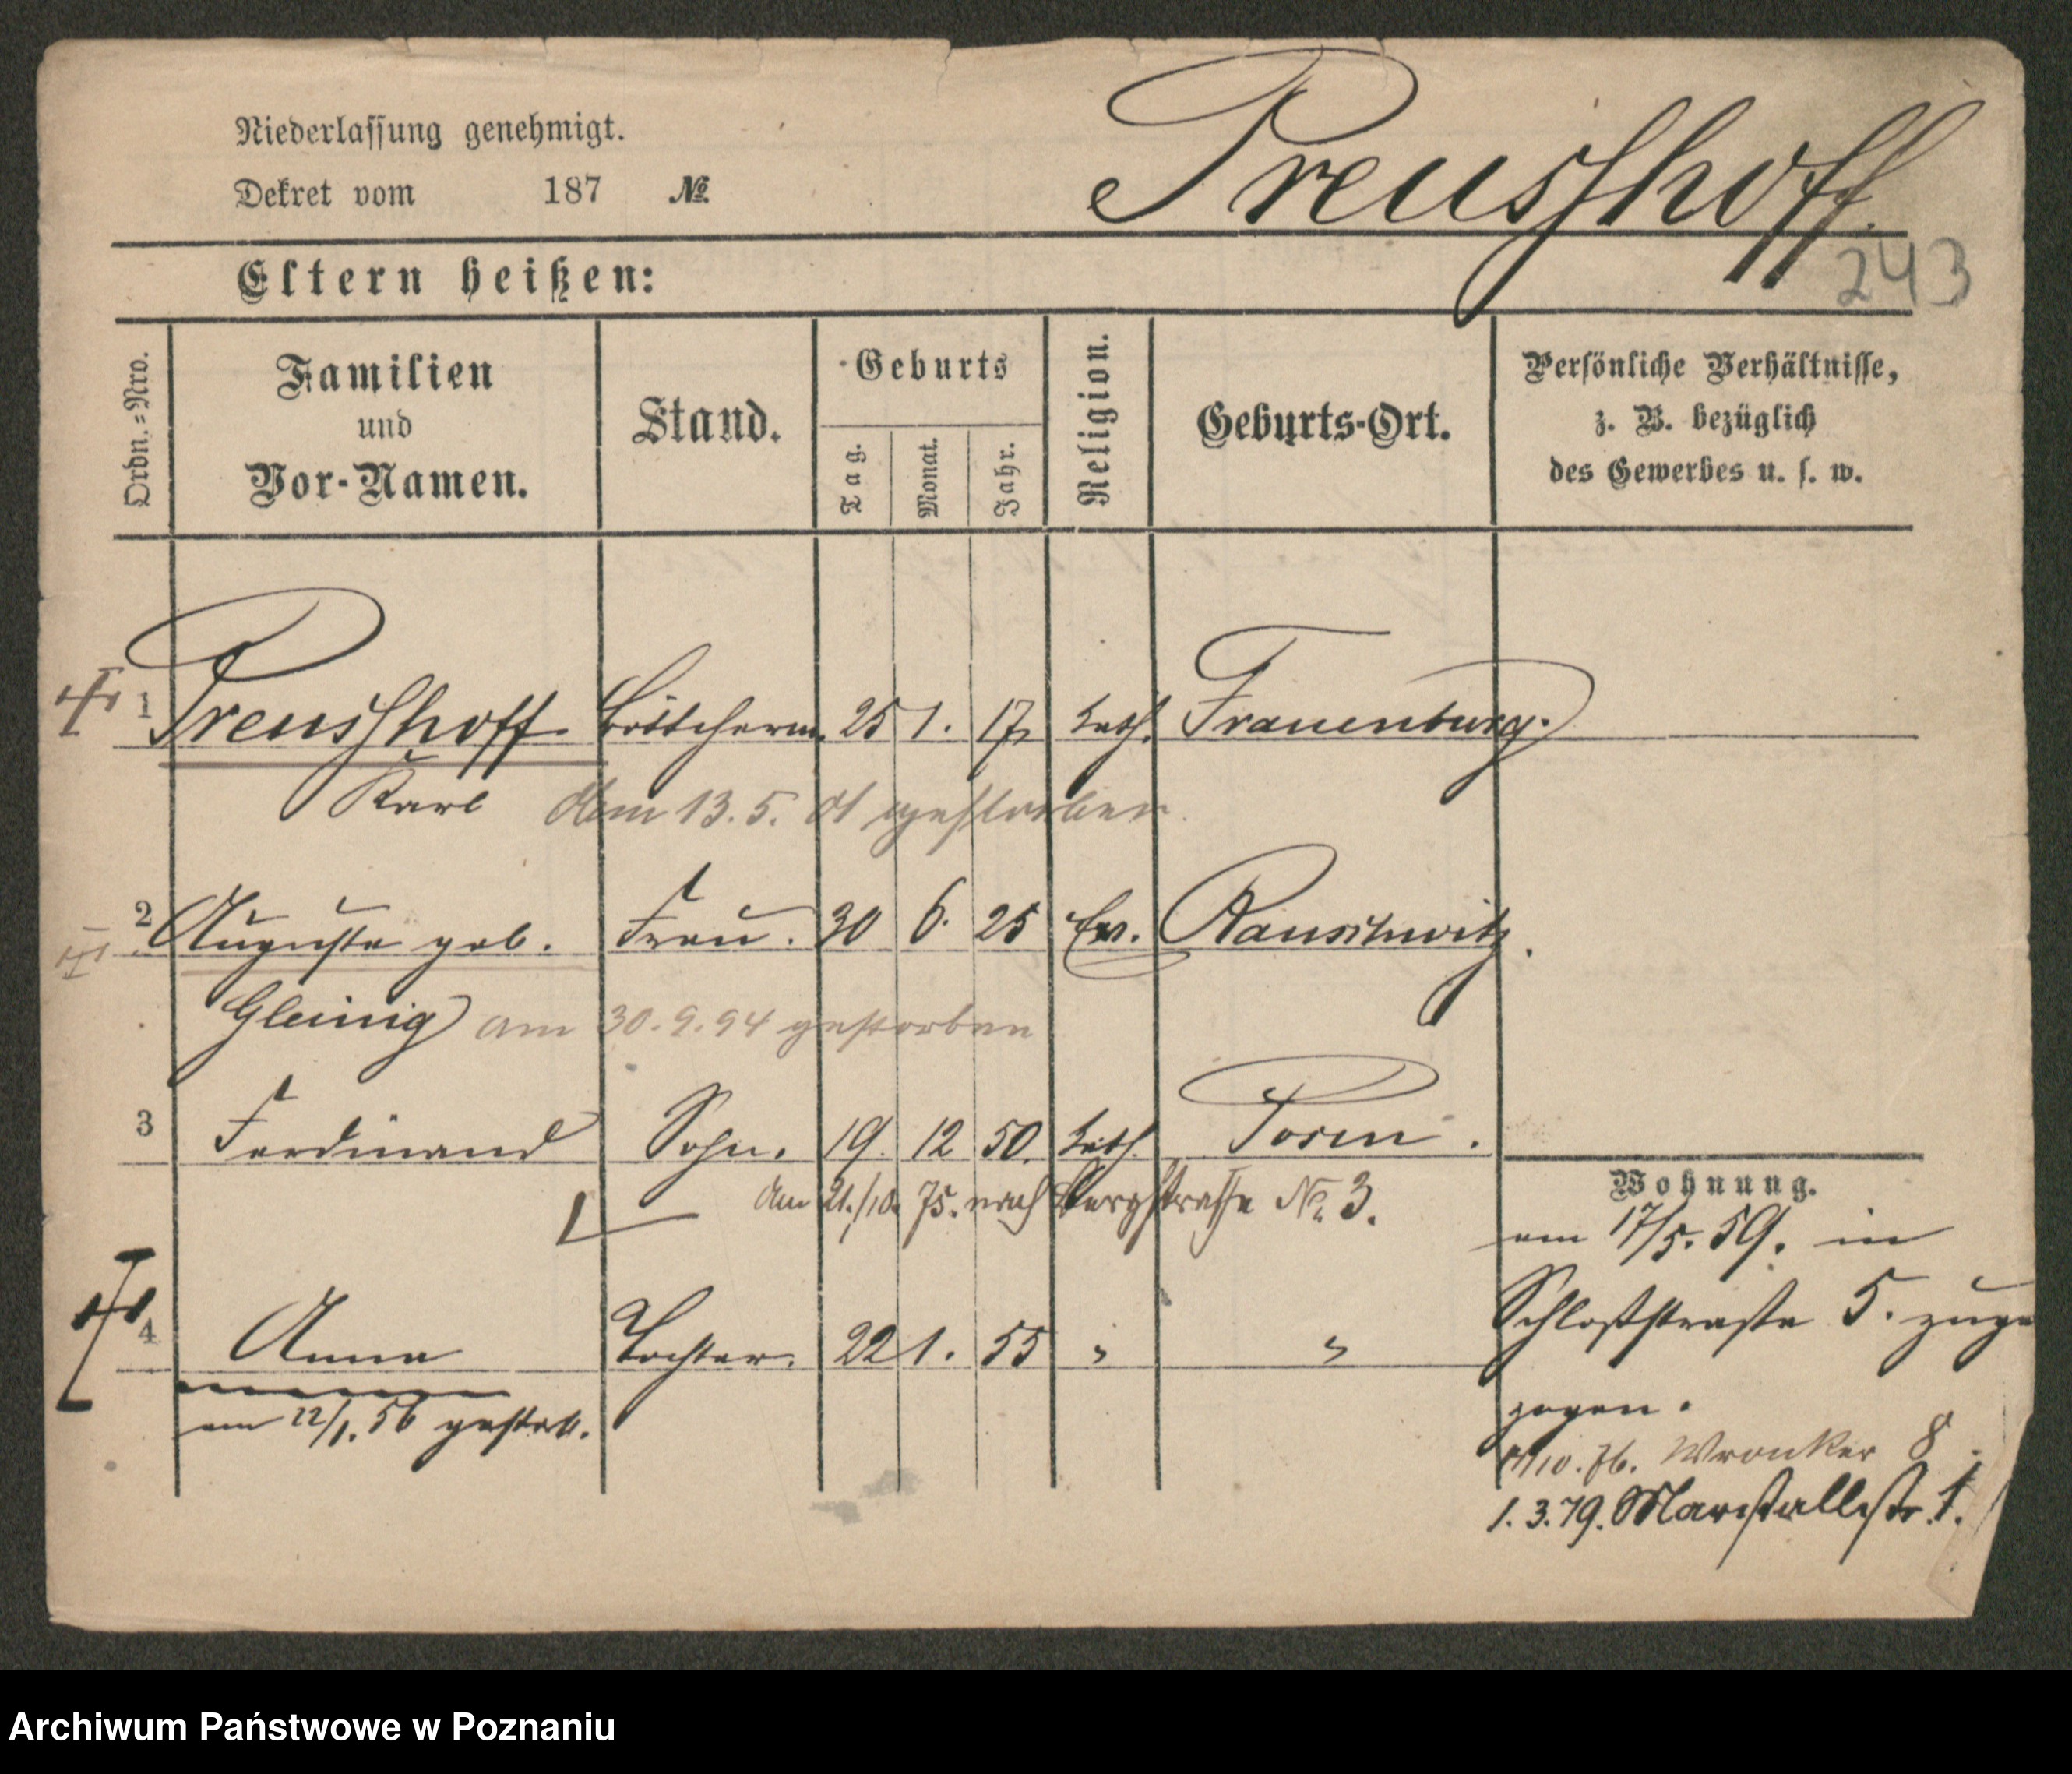 Niederlassung genehmigt.
Dekret vom 187 №
Preusshoff.
243
Eltern heißen:
Ordn.=Nro.
Familien und Vor-Namen.
Stand.
Geburts
Tag. Monat. Jahr.
Religion.
Geburts-Ort.
Persönliche Verhältnisse, z. B. bezüglich des Gewerbes u. s. w.
1 Preusshoff Böttcherm. 25 1. 17 kath. Frauenburg.
Karl am 13.5. gestorben
2 Auguste geb. Frau. 30 6. 25 Ev. Rauschwitz.
Gleinig am 30.9.94 gestorben
3 Ferdinand Sohn. 19. 12 50. kath. Posen.
am 21./10. 75. nach Bergstrasse No. 3.
4 Anna Tochter. 22 1. 55 " "
am 22/1. 56 gestorb.
Wohnung.
am 17/5. 59. in
Schloßstraße 5. zuge
zogen.
/10. 76. Wronker 8.
1.3.79. Marstallstr. 1.
Archiwum Państwowe w Poznaniu